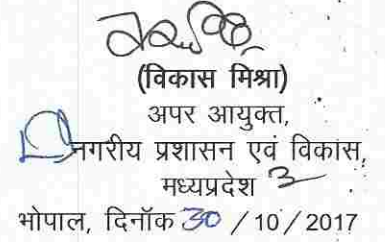 (विकास मिश्रा)
अपर आयुक्त,
नगरीय प्रशासन एवं विकास,
मध्यप्रदेश
भोपाल, दिनॉक 30 / 10 / 2017